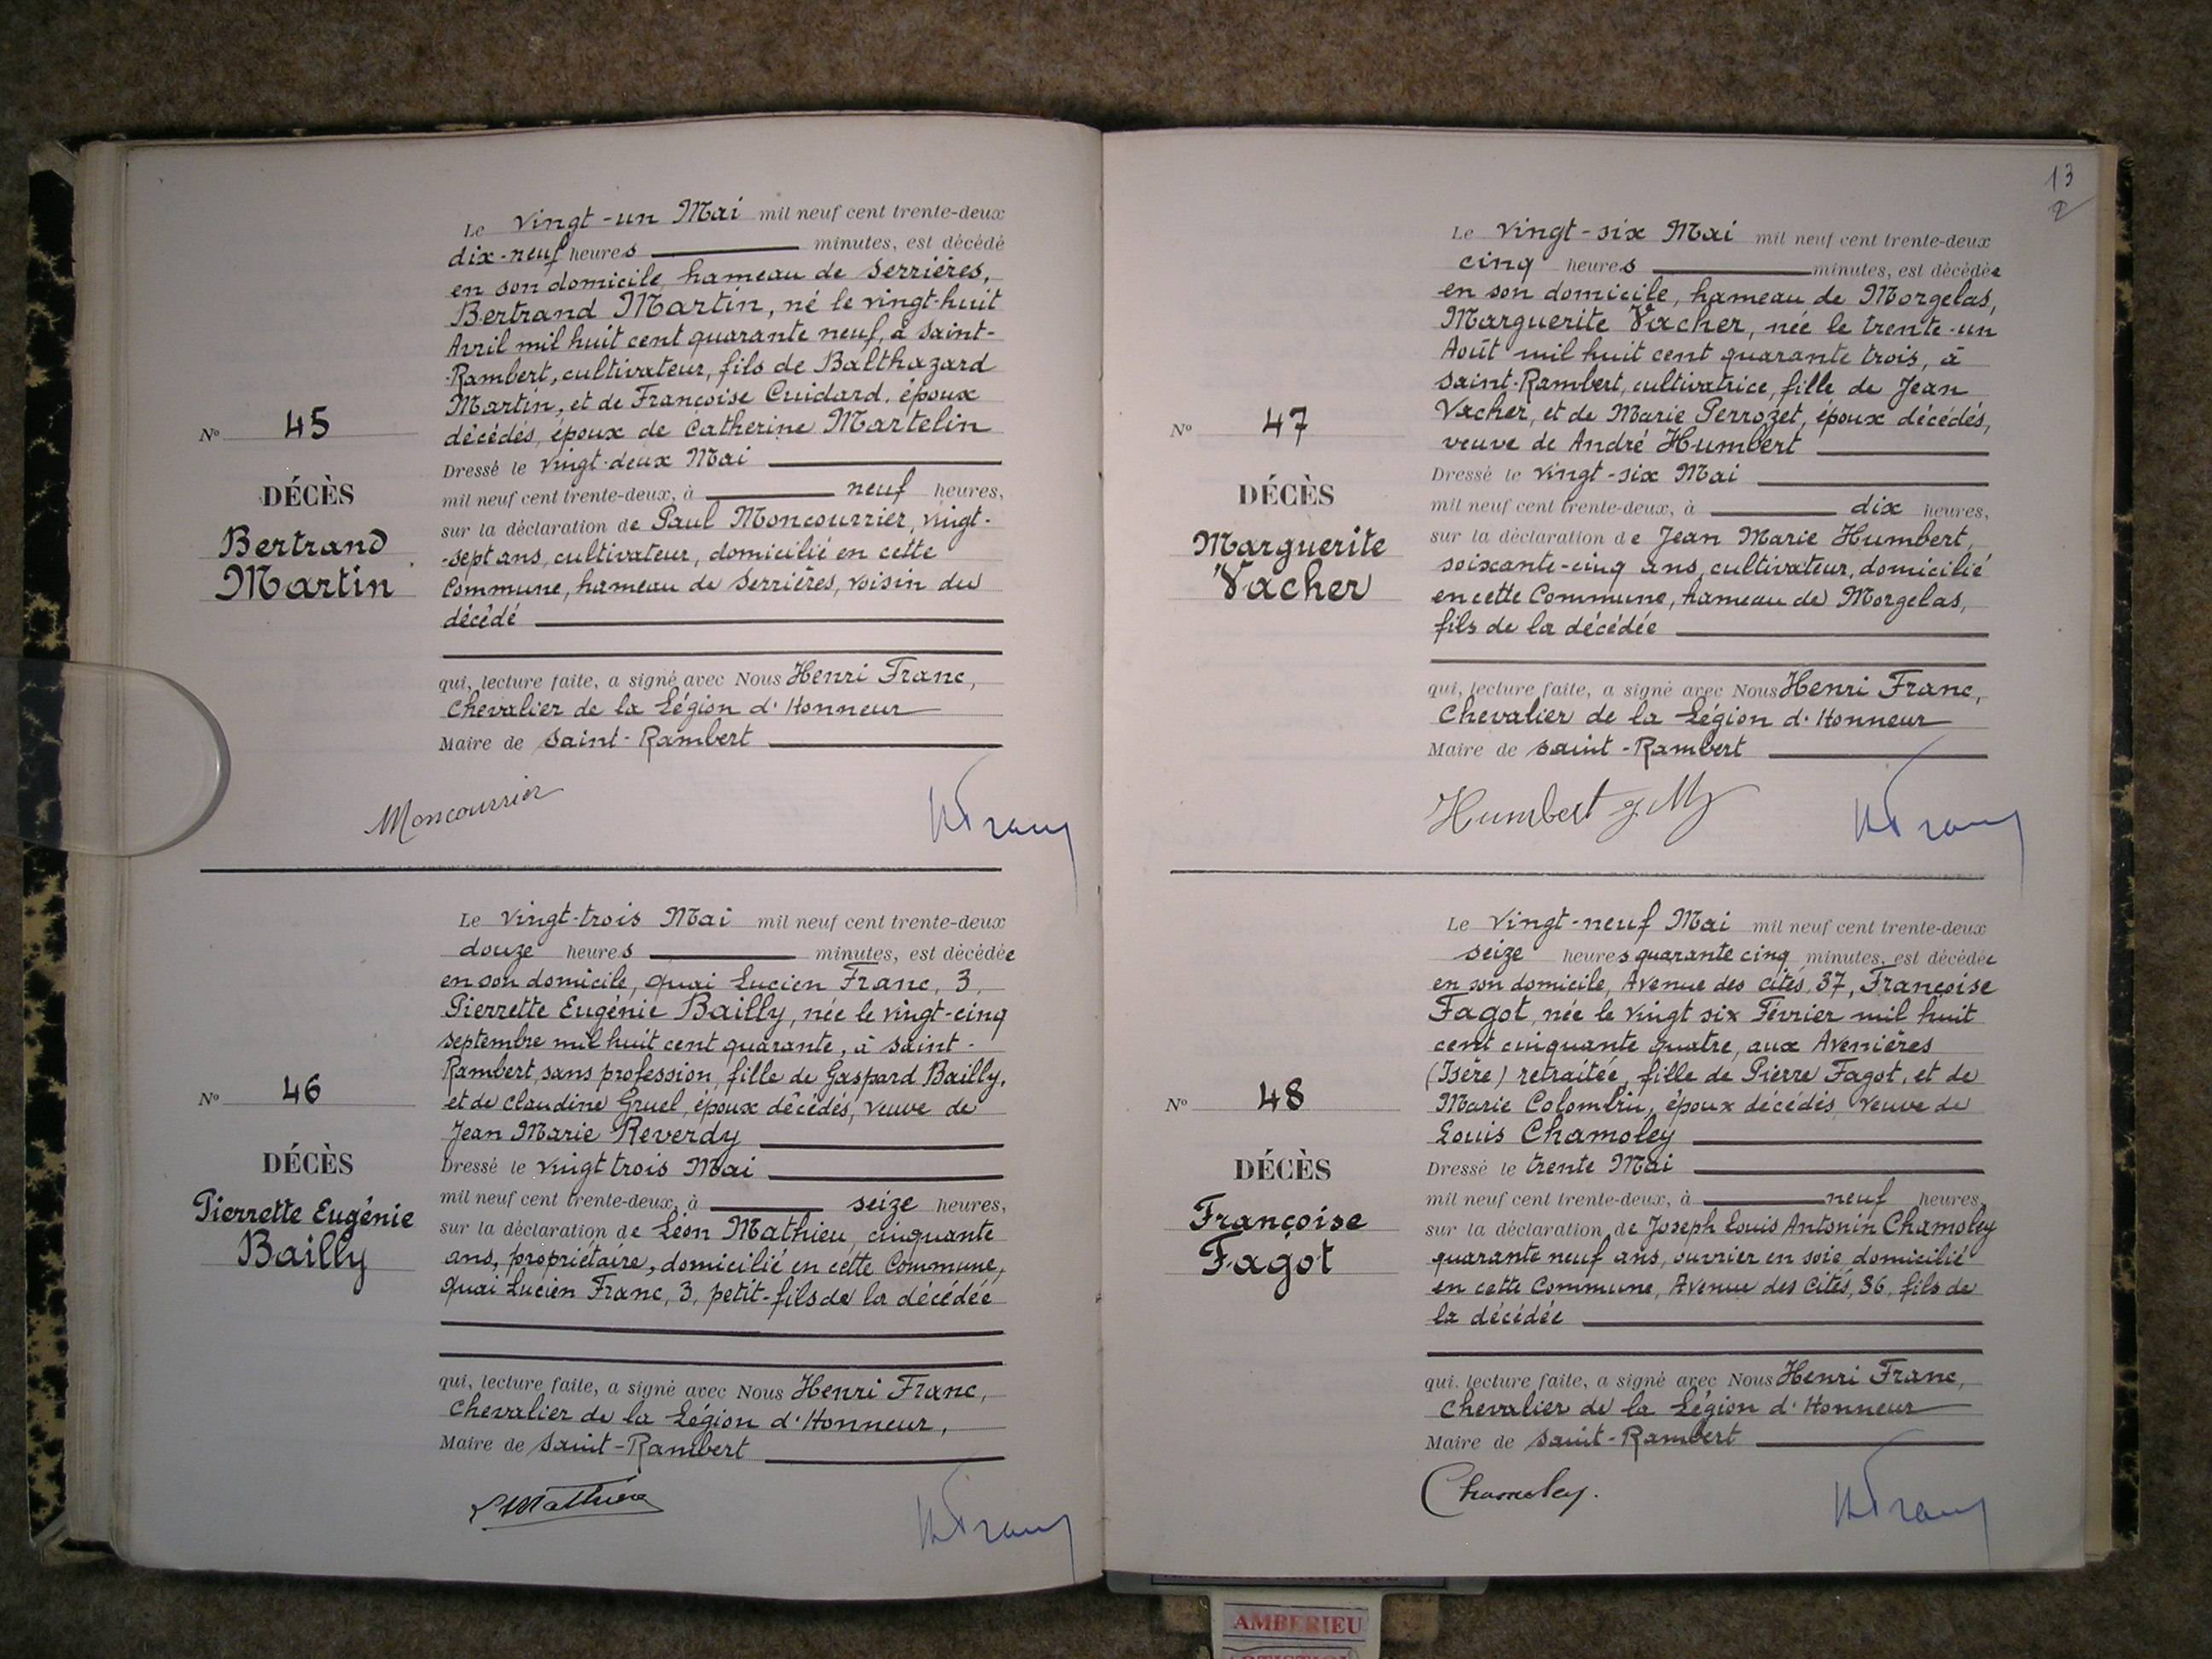 Le vingt-un Mai mil neuf cent trente-deux
dix-neuf heures minutes, est décédé
en son domicile, hameau de Serrières,
Bertrand Martin, né le vingt-huit
Avril mil huit cent quarante neuf, à Saint-
-Rambert, cultivateur, fils de Balthazard
Martin, et de Françoise Cuidard, époux
décédés, époux de Catherine Martelin
Dressé le vingt-deux Mai
mil neuf cent trente-deux, à neuf heures,
sur la déclaration de Paul Moncourrier, vingt-
-sept ans, cultivateur, domicilié en cette
Commune, hameau de Serrières, voisin du
décédé
qui, lecture faite, a signé avec Nous Henri Franc,
Chevalier de la Légion d'Honneur
Maire de Saint-Rambert
N° 45
DÉCÈS
Bertrand
Martin
Moncourrier
HFranc
Le vingt-trois Mai mil neuf cent trente-deux
douze heures minutes, est décédée
en son domicile, quai Lucien Franc, 3,
Pierrette Eugénie Bailly, née le vingt-cinq
septembre mil huit cent quarante, à Saint-
Rambert, sans profession, fille de Gaspard Bailly,
et de Claudine Gruel, époux décédés, veuve de
Jean Marie Reverdy
Dressé le vingt trois Mai
mil neuf cent trente-deux, à seize heures,
sur la déclaration de Léon Mathieu, cinquante
ans, propriétaire, domicilié en cette Commune,
quai Lucien Franc, 3, petit-fils de la décédée
qui, lecture faite, a signé avec Nous Henri Franc,
Chevalier de la Légion d'Honneur,
Maire de Saint-Rambert
N° 46
DÉCÈS
Pierrette Eugénie
Bailly
LMathieu
HFranc
13
2
Le vingt-six Mai mil neuf cent trente-deux
cinq heures minutes, est décédée
en son domicile, hameau de Morgelas,
Marguerite Vacher, née le trente-un
Août mil huit cent quarante trois, à
Saint-Rambert, cultivatrice, fille de Jean
Vacher, et de Marie Perrozet, époux décédés,
veuve de André Humbert
Dressé le vingt-six Mai
mil neuf cent trente-deux, à dix heures,
sur la déclaration de Jean Marie Humbert,
soixante-cinq ans, cultivateur, domicilié
en cette Commune, hameau de Morgelas,
fils de la décédée
qui, lecture faite, a signé avec Nous Henri Franc,
Chevalier de la Légion d'Honneur
Maire de Saint-Rambert
N° 47
DÉCÈS
Marguerite
Vacher
Humbert J M
HFranc
Le vingt-neuf Mai mil neuf cent trente-deux
seize heures quarante cinq minutes, est décédée
en son domicile, Avenue des Cités, 37, Françoise
Fagot, née le vingt six Février mil huit
cent cinquante quatre, aux Avenières
(Isère) retraitée, fille de Pierre Fagot, et de
Marie Colombin, époux décédés, veuve de
Louis Chamoley
Dressé le trente Mai
mil neuf cent trente-deux, à neuf heures,
sur la déclaration de Joseph Louis Antonin Chamoley
quarante neuf ans, ouvrier en soie, domicilié
en cette Commune, Avenue des Cités, 36, fils de
la décédée
qui, lecture faite, a signé avec Nous Henri Franc,
Chevalier de la Légion d'Honneur
Maire de Saint-Rambert
N° 48
DÉCÈS
Françoise
Fagot
Chamoley.
HFranc
AMBERIEU